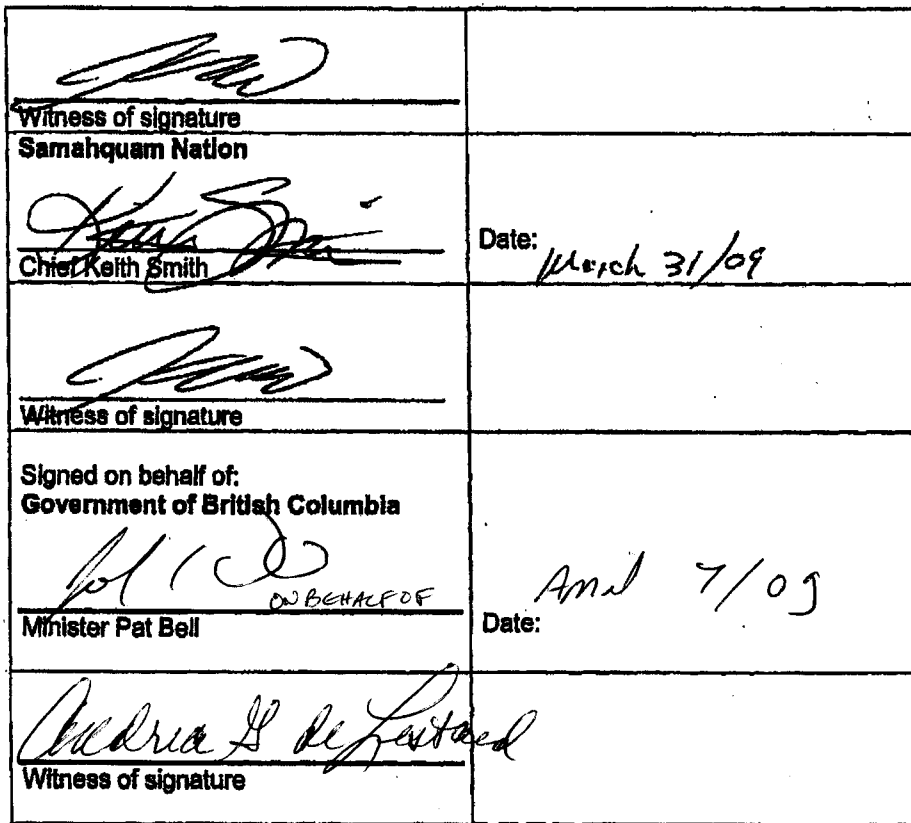 Witness of signature
Samahquam Nation
Chief Keith Smith
Date:
March 31/09
Witness of signature
Signed on behalf of:
Government of British Columbia
ON BEHALF OF
Minister Pat Bell
April 7/09
Date:
Andrea G de
Witness of signature